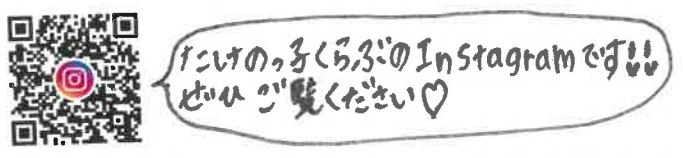 たけのっ子くらぶのInstagramです!!
ぜひ ご覧ください♡